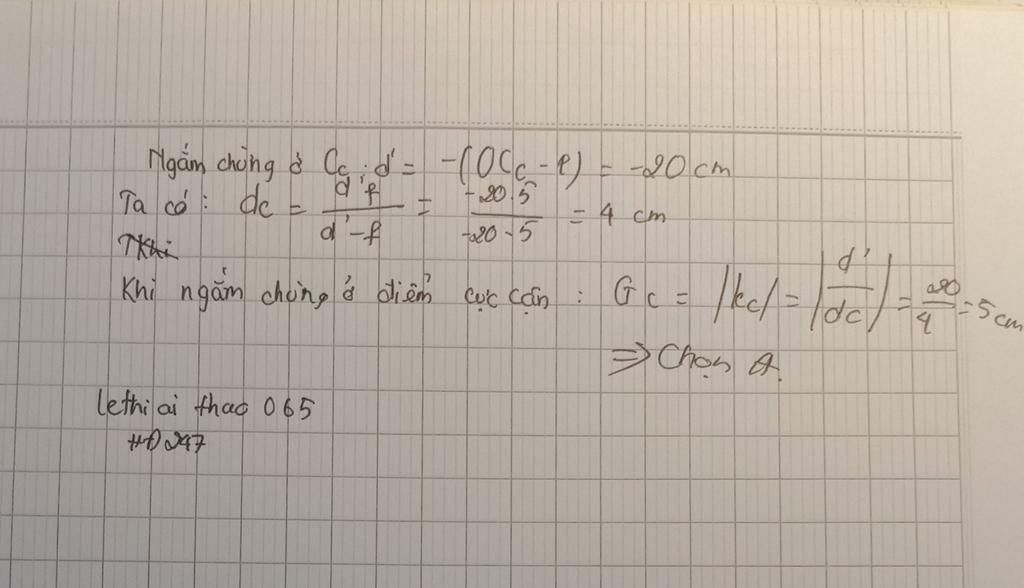 Ngắm chừng ở Cc : d' = -(OCc - l) = -20 cm
Ta có : dc = d'f / d'-f = -20.5 / -20-5 = 4 cm
TKhi
Khi ngắm chừng ở điểm cực cận : Gc = |kc| = |d' / dc| = 20 / 4 = 5 cm
⇒ Chọn A.
lethi ai thao 065